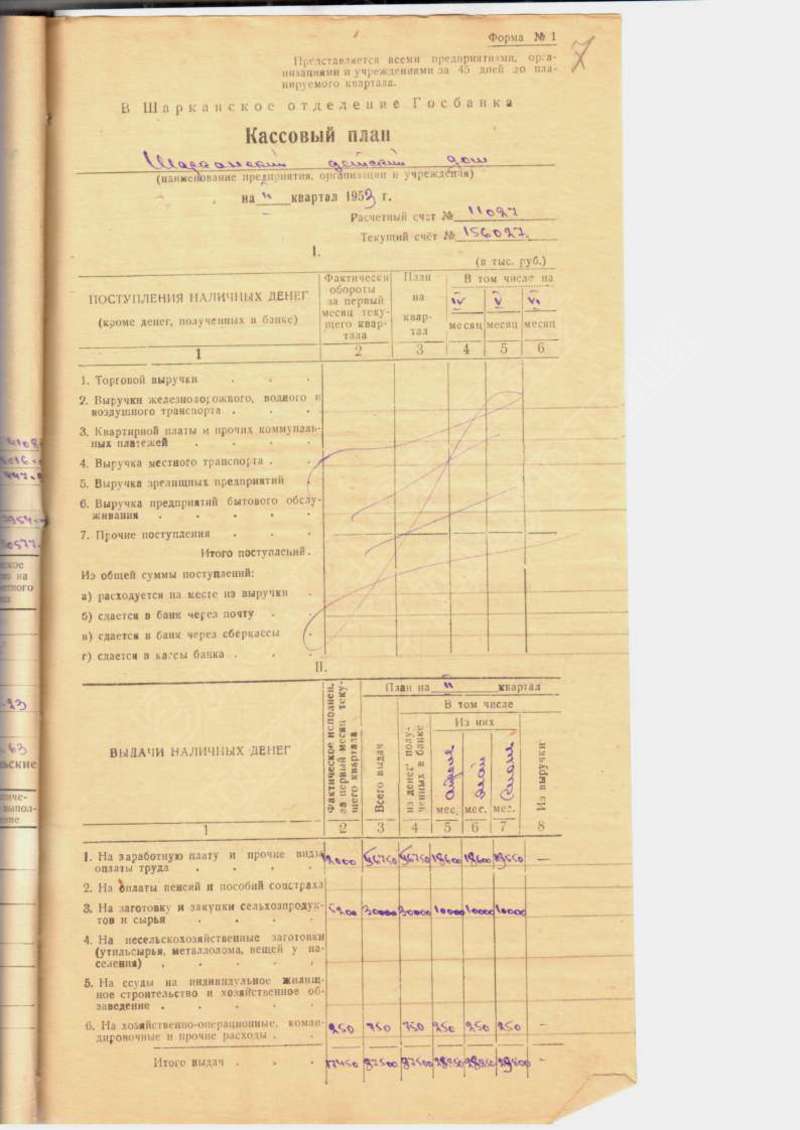 Форма № 1
7
Представляется всеми предприятиями, орга-
низациями и учреждениями за 45 дней до пла-
нируемого квартала.
В Шарканское отделение Госбанка
Кассовый план
Шарканский детский дом
(наименование предприятия, организации и учреждения)
на II квартал 1953 г.
Расчетный счет № 11027
Текущий счёт № 156027
I.
(в тыс. руб.)
ПОСТУПЛЕНИЯ НАЛИЧНЫХ ДЕНЕГ
(кроме денег, полученных в банке)
Фактически
обороты
за первый
месяц теку-
щего квар-
тала
План
на
квар-
тал
В том числе на
IV V VI
месяц месяц месяц
1 2 3 4 5 6
1. Торговой выручки . . .
2. Выручки железнодорожного, водного и
воздушного транспорта . . .
3. Квартирной платы и прочих коммуналь-
ных платежей . . .
4. Выручка местного транспорта . .
5. Выручка зрелищных предприятий .
6. Выручка предприятий бытового обслу-
живания . . . . .
7. Прочие поступления . . .
Итого поступлений .
Из общей суммы поступлений:
а) расходуется на месте из выручки .
б) сдается в банк через почту . .
в) сдается в банк через сберкассы .
г) сдается в кассы банка . . .
II.
ВЫДАЧИ НАЛИЧНЫХ ДЕНЕГ
Фактическое исполнен.
за первый месяц теку-
щего квартала
План на II квартал
Всего выдач
В том числе
из денег полу-
ченных в банке
Из них
апрель
май
июнь
мес. мес. мес.
Из выручки
1 2 3 4 5 6 7 8
1. На заработную плату и прочие виды
оплаты труда . . . .
56750 56750 18600 18600 19550 —
2. На оплаты пенсий и пособий соцстраха
3. На заготовку и закупки сельхозпродук-
тов и сырья . . . .
5200 30000 30000 10000 10000 10000
4. На несельскохозяйственные заготовки
(утильсырья, металлолома, вещей у на-
селения) . . . . .
5. На ссуды на индивидульное жилищ-
ное строительство и хозяйственное об-
заведение . . . . .
6. На хозяйственно-операционные, коман-
дировочные и прочие расходы . .
250 750 750 250 250 250 —
Итого выдач . . .
17450 87500 87500 28850 28850 29800 —